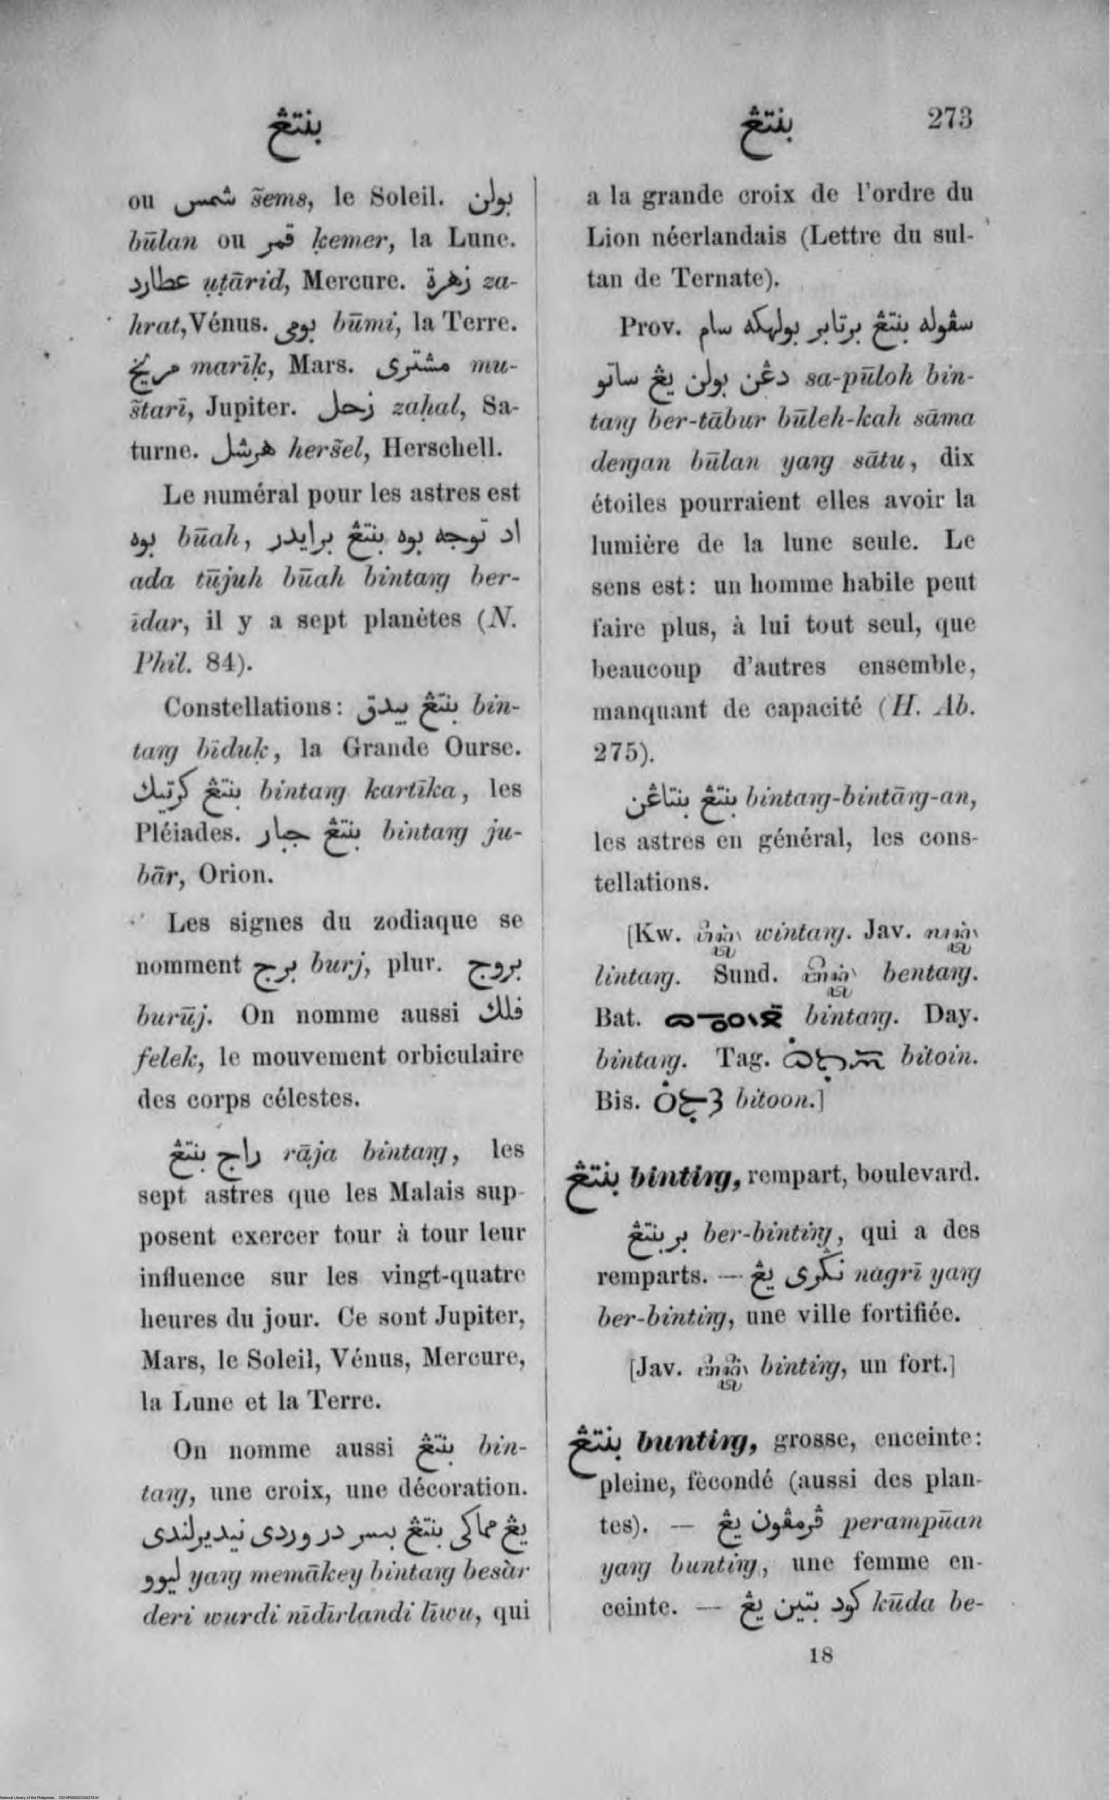 بنتڠ
بنتڠ 273
ou شمس s̃ems, le Soleil. بولن
būlan ou قمر ḳemer, la Lune.
عطارد uṭārid, Mercure. زهرة za-
hrat, Vénus. بومي būmi, la Terre.
مريخ marīḳ, Mars. مشترى mu-
s̃tarī, Jupiter. زحل zaḥal, Sa-
turne. هرشل hers̃el, Herschell.
Le numéral pour les astres est
بوه būah, اد توجه بوه بنتڠ برايدر
ada tūjuh būah bintaŋ ber-
īdar, il y a sept planètes (N.
Phil. 84).
Constellations: بنتڠ بيدق bin-
taŋ bīduḳ, la Grande Ourse.
بنتڠ كرتيك bintaŋ kartīka, les
Pléiades. بنتڠ جبار bintaŋ ju-
bār, Orion.
Les signes du zodiaque se
nomment برج burj, plur. بروج
burūj. On nomme aussi فلك
felek, le mouvement orbiculaire
des corps célestes.
راج بنتڠ rāja bintaŋ, les
sept astres que les Malais sup-
posent exercer tour à tour leur
influence sur les vingt-quatre
heures du jour. Ce sont Jupiter,
Mars, le Soleil, Vénus, Mercure,
la Lune et la Terre.
On nomme aussi بنتڠ bin-
taŋ, une croix, une décoration.
يڠ مماكى بنتڠ بسر در وردى نيديرلندى
ليوو yaŋ memākey bintaŋ besàr
deri wurdi nīdirlandi līwu, qui
a la grande croix de l'ordre du
Lion néerlandais (Lettre du sul-
tan de Ternate).
Prov. سڤوله بنتڠ برتابر بولهكه سام
دڠن بولن يڠ ساتو sa-pūloh bin-
taŋ ber-tābur būleh-kah sāma
deŋan būlan yaŋ sātu, dix
étoiles pourraient elles avoir la
lumière de la lune seule. Le
sens est: un homme habile peut
faire plus, à lui tout seul, que
beaucoup d'autres ensemble,
manquant de capacité (H. Ab.
275).
بنتڠ بنتاڠن bintaŋ-bintāŋ-an,
les astres en général, les cons-
tellations.
[Kw. wintaŋ. Jav.
lintaŋ. Sund. bentaŋ.
Bat. bintaŋ. Day.
bintaŋ. Tag. bitoin.
Bis. bitoon.]
بنتڠ bintiŋ, rempart, boulevard.
بربنتڠ ber-bintiŋ, qui a des
remparts. — نگرى يڠ nagrī yaŋ
ber-bintiŋ, une ville fortifiée.
[Jav. bintiŋ, un fort.]
بنتڠ buntiŋ, grosse, enceinte:
pleine, fécondé (aussi des plan-
tes). — ڤرمڤون يڠ perampūan
yaŋ buntiŋ, une femme en-
ceinte. — كود بتين يڠ kūda be-
18